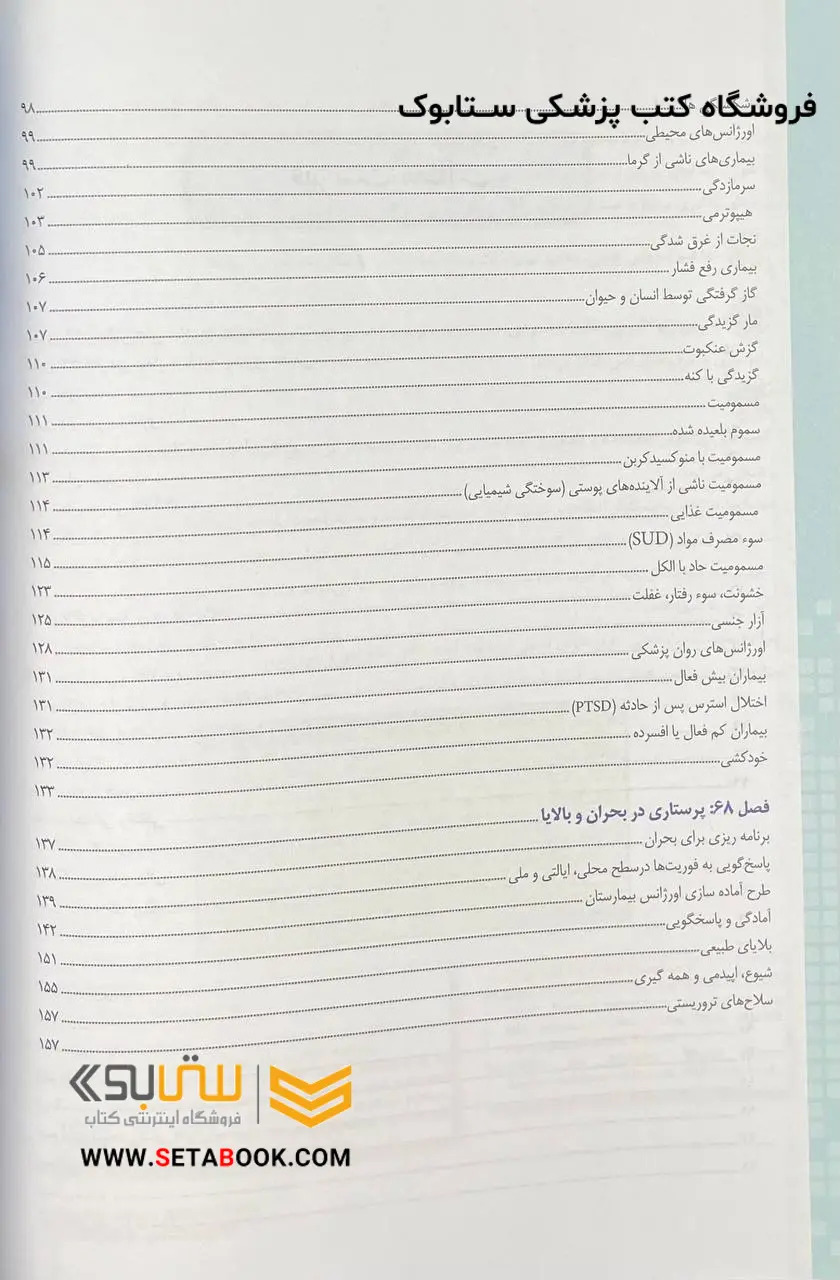 فروشگاه کتب پزشکی ســتابوک
۹۸
اورژانس‌های محیطی ۹۹
بیماری‌های ناشی از گرما ۹۹
سرمازدگی ۱۰۲
هیپوترمی ۱۰۳
نجات از غرق شدگی ۱۰۵
بیماری رفع فشار ۱۰۶
گاز گرفتگی توسط انسان و حیوان ۱۰۷
مار گزیدگی ۱۰۷
گزش عنکبوت ۱۱۰
گزیدگی با کنه ۱۱۰
مسمومیت ۱۱۱
سموم بلعیده شده ۱۱۱
مسمومیت با منوکسیدکربن ۱۱۳
مسمومیت ناشی از آلاینده‌های پوستی (سوختگی شیمیایی) ۱۱۴
مسمومیت غذایی ۱۱۴
سوء مصرف مواد (SUD) ۱۱۵
مسمومیت حاد با الکل ۱۲۳
خشونت، سوء رفتار، غفلت ۱۲۵
آزار جنسی ۱۲۸
اورژانس‌های روان پزشکی ۱۳۱
بیماران بیش فعال ۱۳۱
اختلال استرس پس از حادثه (PTSD) ۱۳۲
بیماران کم فعال یا افسرده ۱۳۲
خودکشی ۱۳۳
فصل ۶۸: پرستاری در بحران و بالایا ۱۳۷
برنامه ریزی برای بحران ۱۳۸
پاسخ‌گویی به فوریت‌ها درسطح محلی، ایالتی و ملی ۱۳۹
طرح آماده سازی اورژانس بیمارستان ۱۴۲
آمادگی و پاسخگویی ۱۵۱
بلایای طبیعی ۱۵۵
شیوع، اپیدمی و همه گیری ۱۵۷
سلاح‌های تروریستی ۱۵۷
ستابوک
فروشگاه اینترنتی کتاب
WWW.SETABOOK.COM